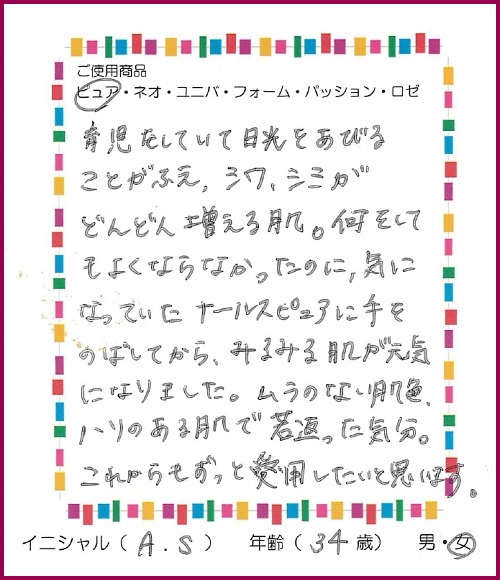 ご使用商品
ピュア・ネオ・ユニバ・フォーム・パッション・ロゼ
育児をしていて日光をあびる
ことがふえ、シワ、シミが
どんどん増える肌。何をして
もよくならなかったのに、気に
なっていたナールスピュアに手を
のばしてから、みるみる肌が元気
になりました。ムラのない肌色、
ハリのある肌で若返った気分。
これからもずっと愛用したいと思います。
イニシャル（A.S） 年齢（34歳） 男・女